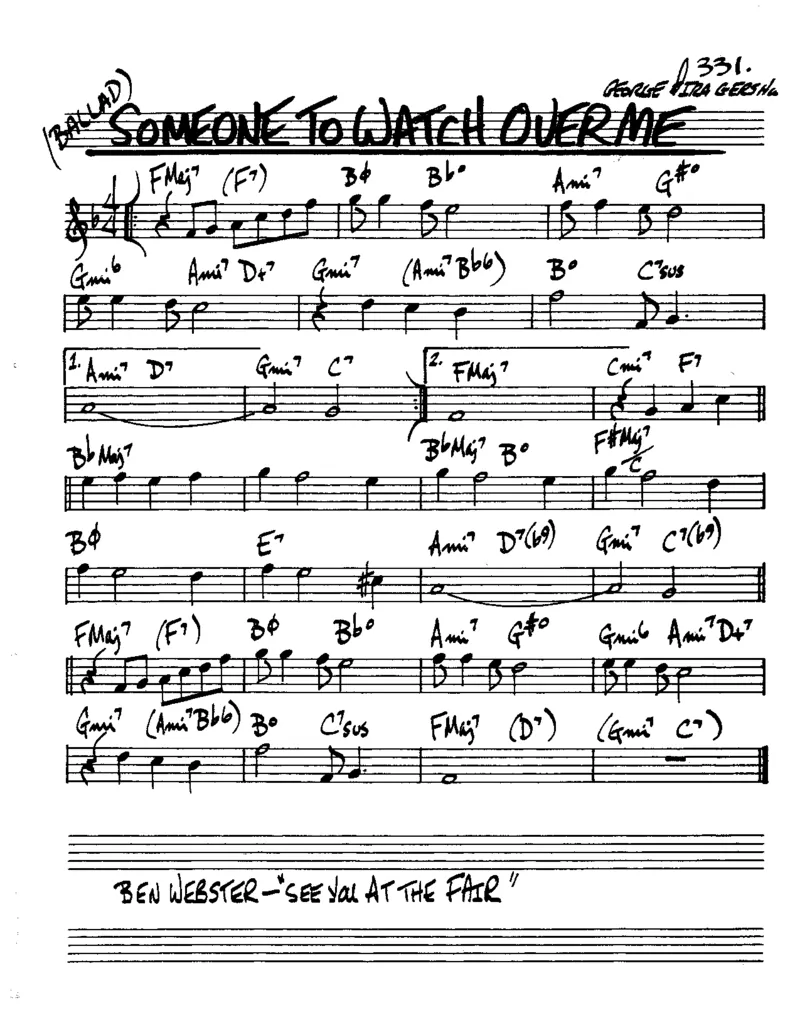 331.
(BALLAD) SOMEONE TO WATCH OVER ME GEORGE IRA
FMaj7 (F7) Bø Bb° Ami7 G#°
4 4
Gmi6 Ami7 D+7 Gmi7 (Ami7 Bb6) B° C7sus
1. Ami7 D7 Gmi7 C7 2. FMaj7 Cmi7 F7
BbMaj7 BbMaj7 B° F#Maj7/C
Bø E7 Ami7 D7(b9) Gmi7 C7(b9)
FMaj7 (F7) Bø Bb° Ami7 G#° Gmi6 Ami7 D+7
Gmi7 (Ami7 Bb6) B° C7sus FMaj7 (D7) (Gmi7 C7)
BEN WEBSTER – "SEE YOU AT THE FAIR"